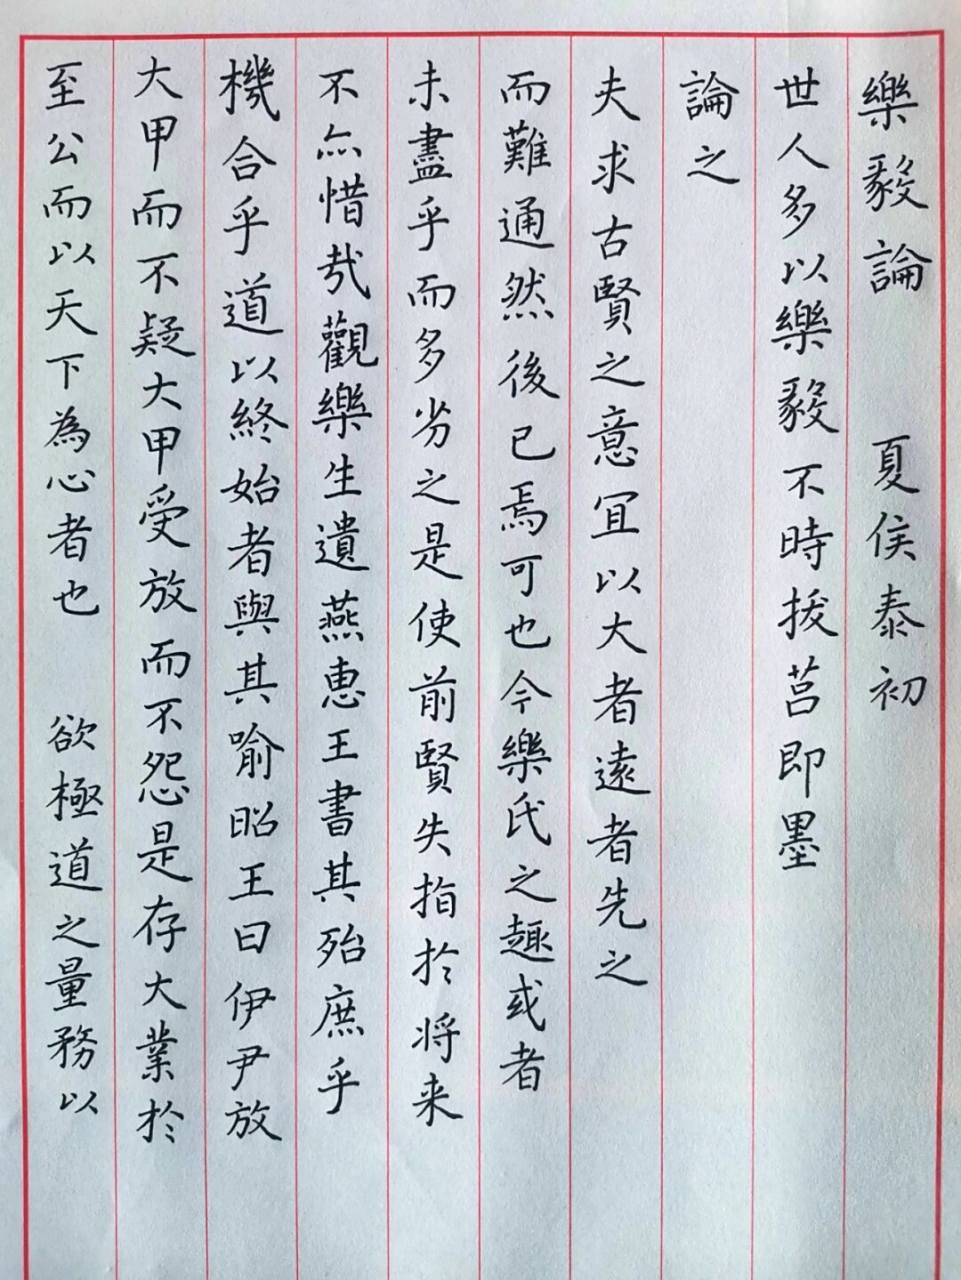 樂毅論 夏侯泰初
世人多以樂毅不時拔莒即墨
論之
夫求古賢之意宜以大者遠者先之
而難通然後已焉可也今樂氏之趣或者
未盡乎而多劣之是使前賢失指於将来
不亦惜哉觀樂生遺燕惠王書其殆庶乎
機合乎道以終始者與其喻昭王曰伊尹放
大甲而不疑大甲受放而不怨是存大業於
至公而以天下為心者也 欲極道之量務以